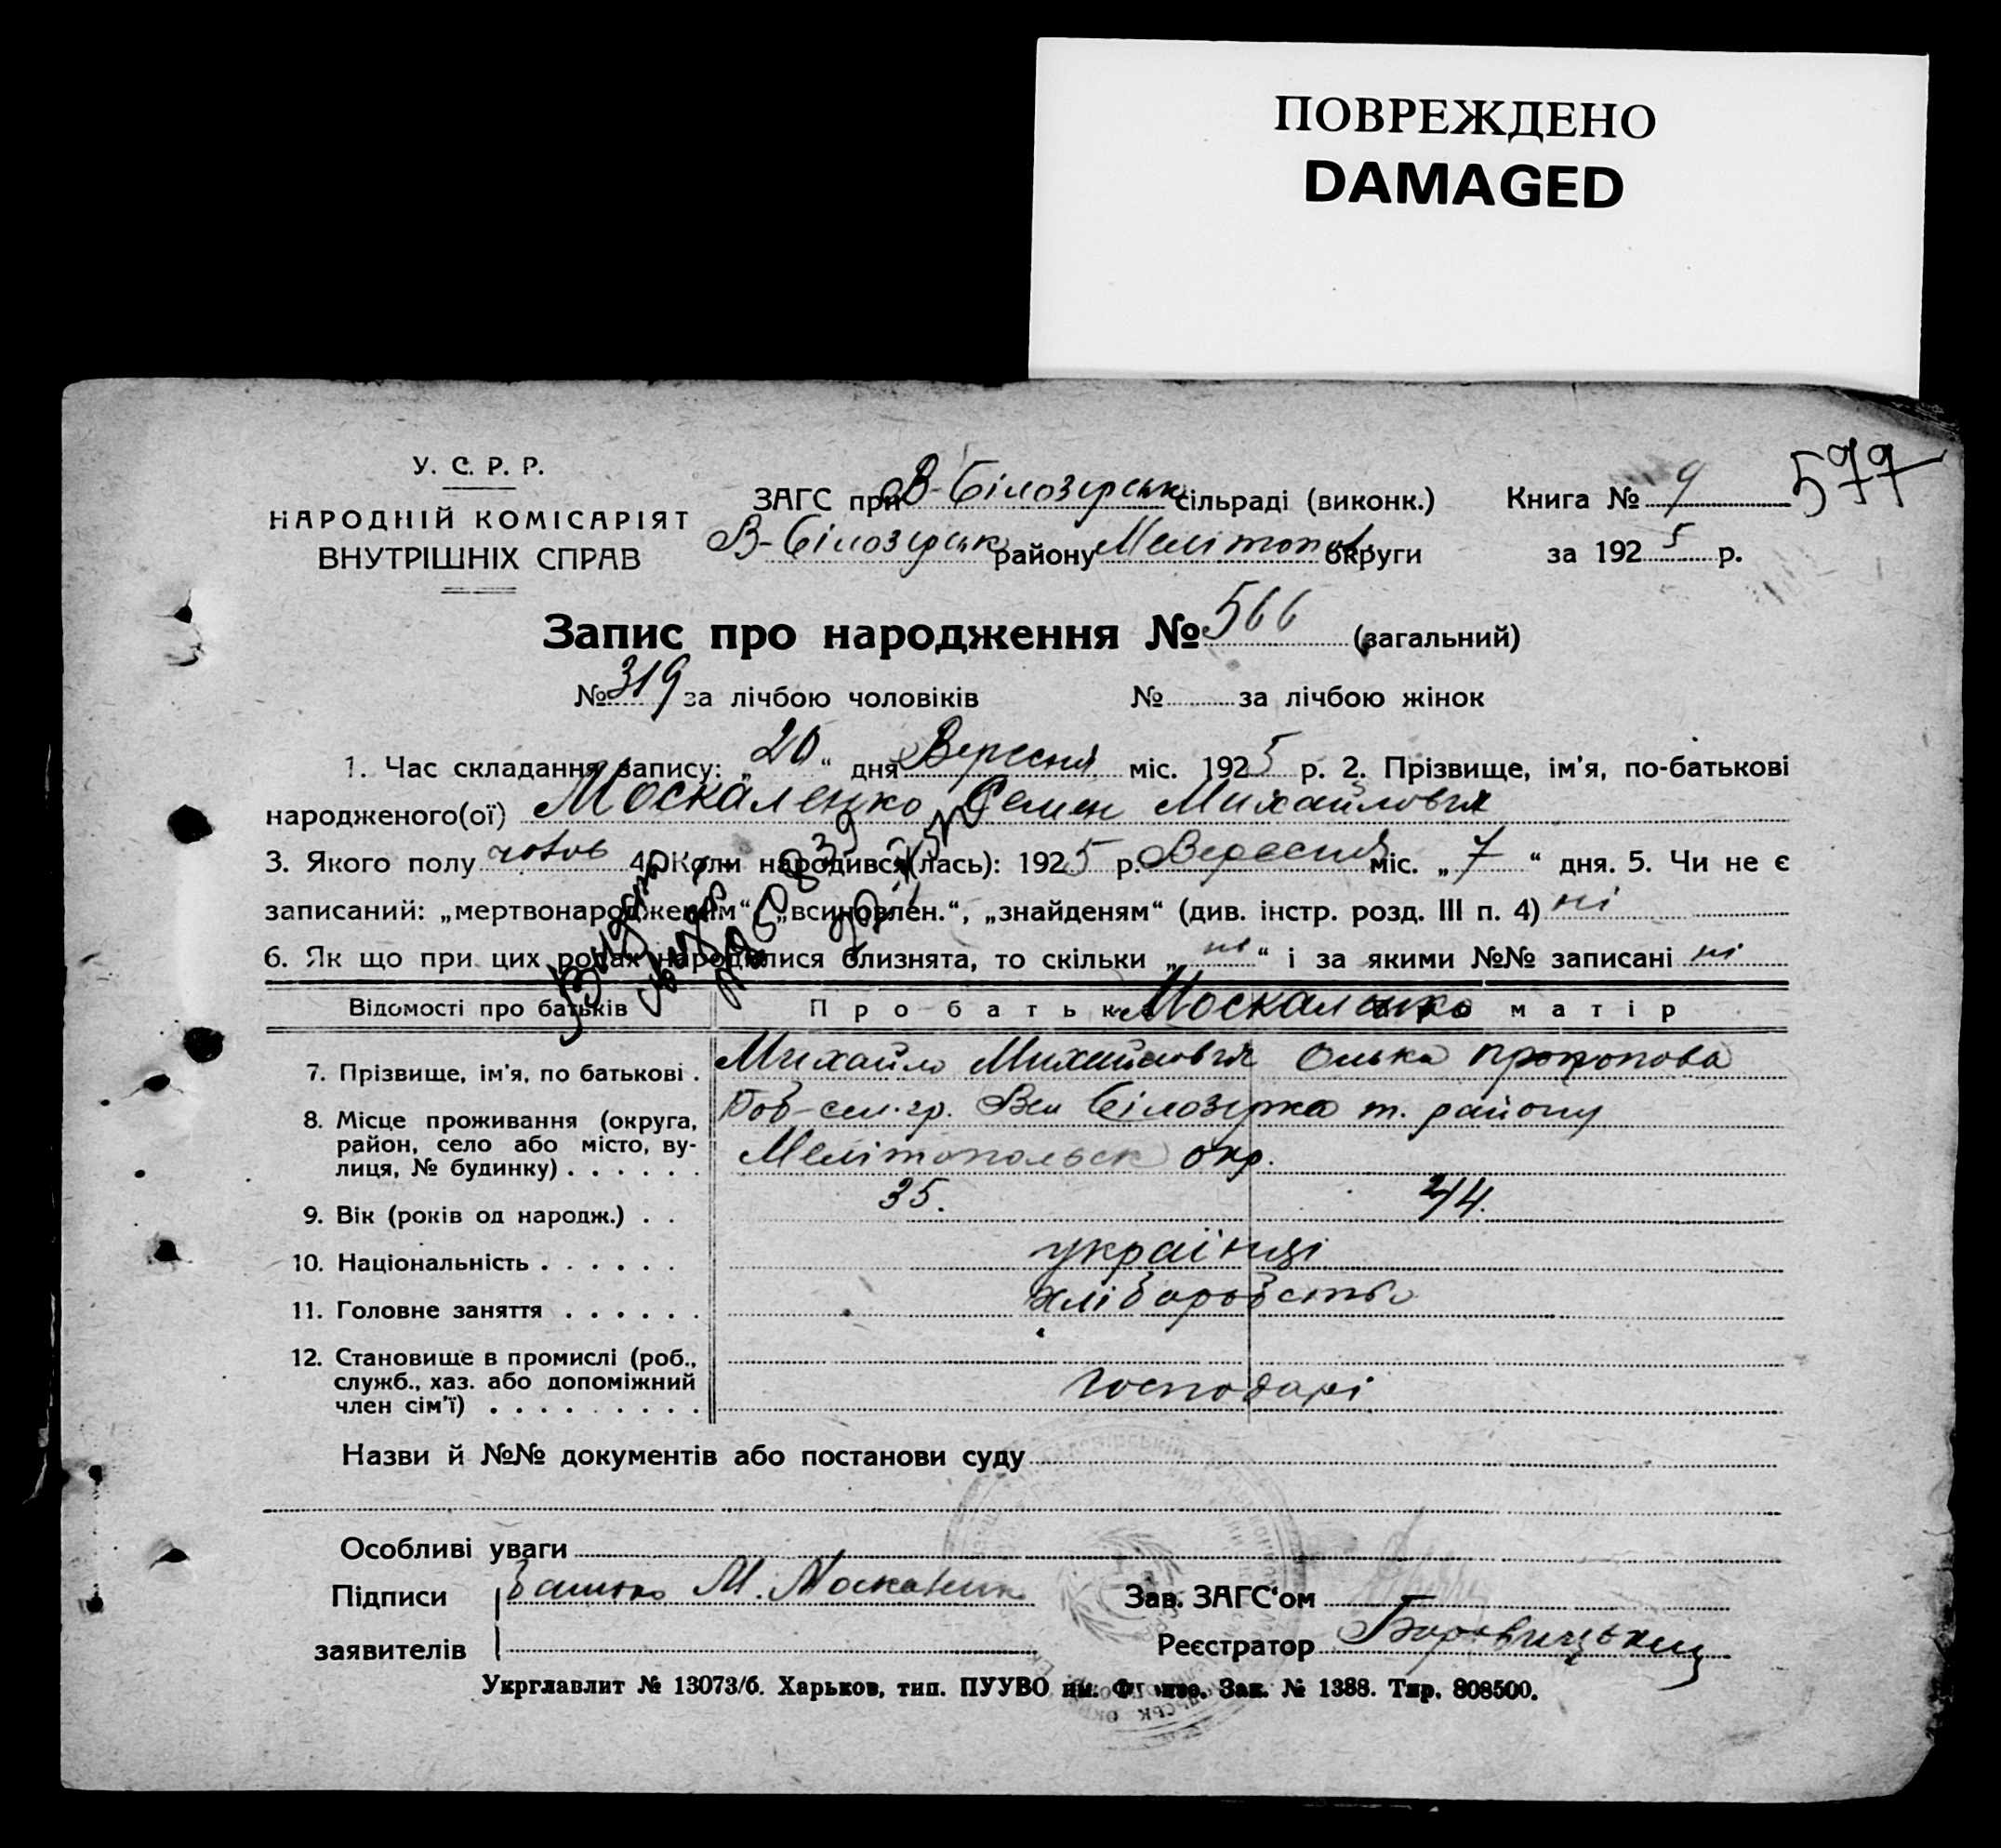 ПОВРЕЖДЕНО
DAMAGED
577
У. С. Р. Р.
НАРОДНІЙ КОМІСАРІЯТ
ВНУТРІШНІХ СПРАВ
ЗАГС при В-Білозерськ сільраді (виконк.) Книга № 9
В-Білозерськ району Мелітопол. округи за 1925 р.
Запис про народження № 566 (загальний)
№ 319 за лічбою чоловіків № за лічбою жінок
1. Час складання запису: „20“ дня Вересня міс. 1925 р. 2. Прізвище, ім'я, по-батькові
народженого(ої) Москаленко Семен Михайлович
3. Якого полу чолов 4. Коли народився(лась): 1925 р. Вересня міс. „7“ дня. 5. Чи не є
записаний: „мертвонародженим“, „всиновлен.“, „знайденям“ (див. інстр. розд. III п. 4) ні
6. Як що при цих родах народилися близнята, то скільки „ні“ і за якими №№ записані ні
Відомості про батьків Про батька Про матір
Москаленко
7. Прізвище, ім'я, по батькові . Михайло Михайлович Олька
8. Місце проживання (округа, Вел Білозерка т. району
район, село або місто, ву-
лиця, № будинку) . . . . . . Мелітопольськ окр.
9. Вік (років од народж.) . . 35. 44.
10. Національність . . . . . . українці
11. Головне заняття . . . . . . хліборобство
12. Становище в промислі (роб.,
служб., хаз. або допоміжний господарі
член сім'ї) . . . . . . . . .
Назви й №№ документів або постанови суду
Особливі уваги
Підписи батько М. Москаленко Зав. ЗАГС'ом
заявителів Реєстратор
Укрглавлит № 13073/б. Харьков, тип. ПУУВО им. Фрунзе. Зак. № 1388. Тир. 808500.